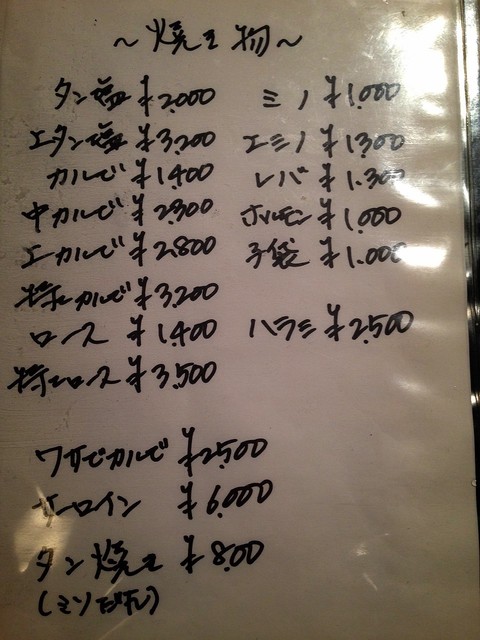 ～焼き物～
タン塩 ¥2,000
上タン塩 ¥3,200
カルビ ¥1,400
中カルビ ¥2,300
上カルビ ¥2,800
特上カルビ ¥3,200
ロース ¥1,400
特上ロース ¥3,500
ミノ ¥1,000
上ミノ ¥1,300
レバ ¥1,300
ホルモン ¥1,000
子袋 ¥1,000
ハラミ ¥2,500
ワサビカルビ ¥2,500
サーロイン ¥6,000
タン焼き ¥800
(ミソ